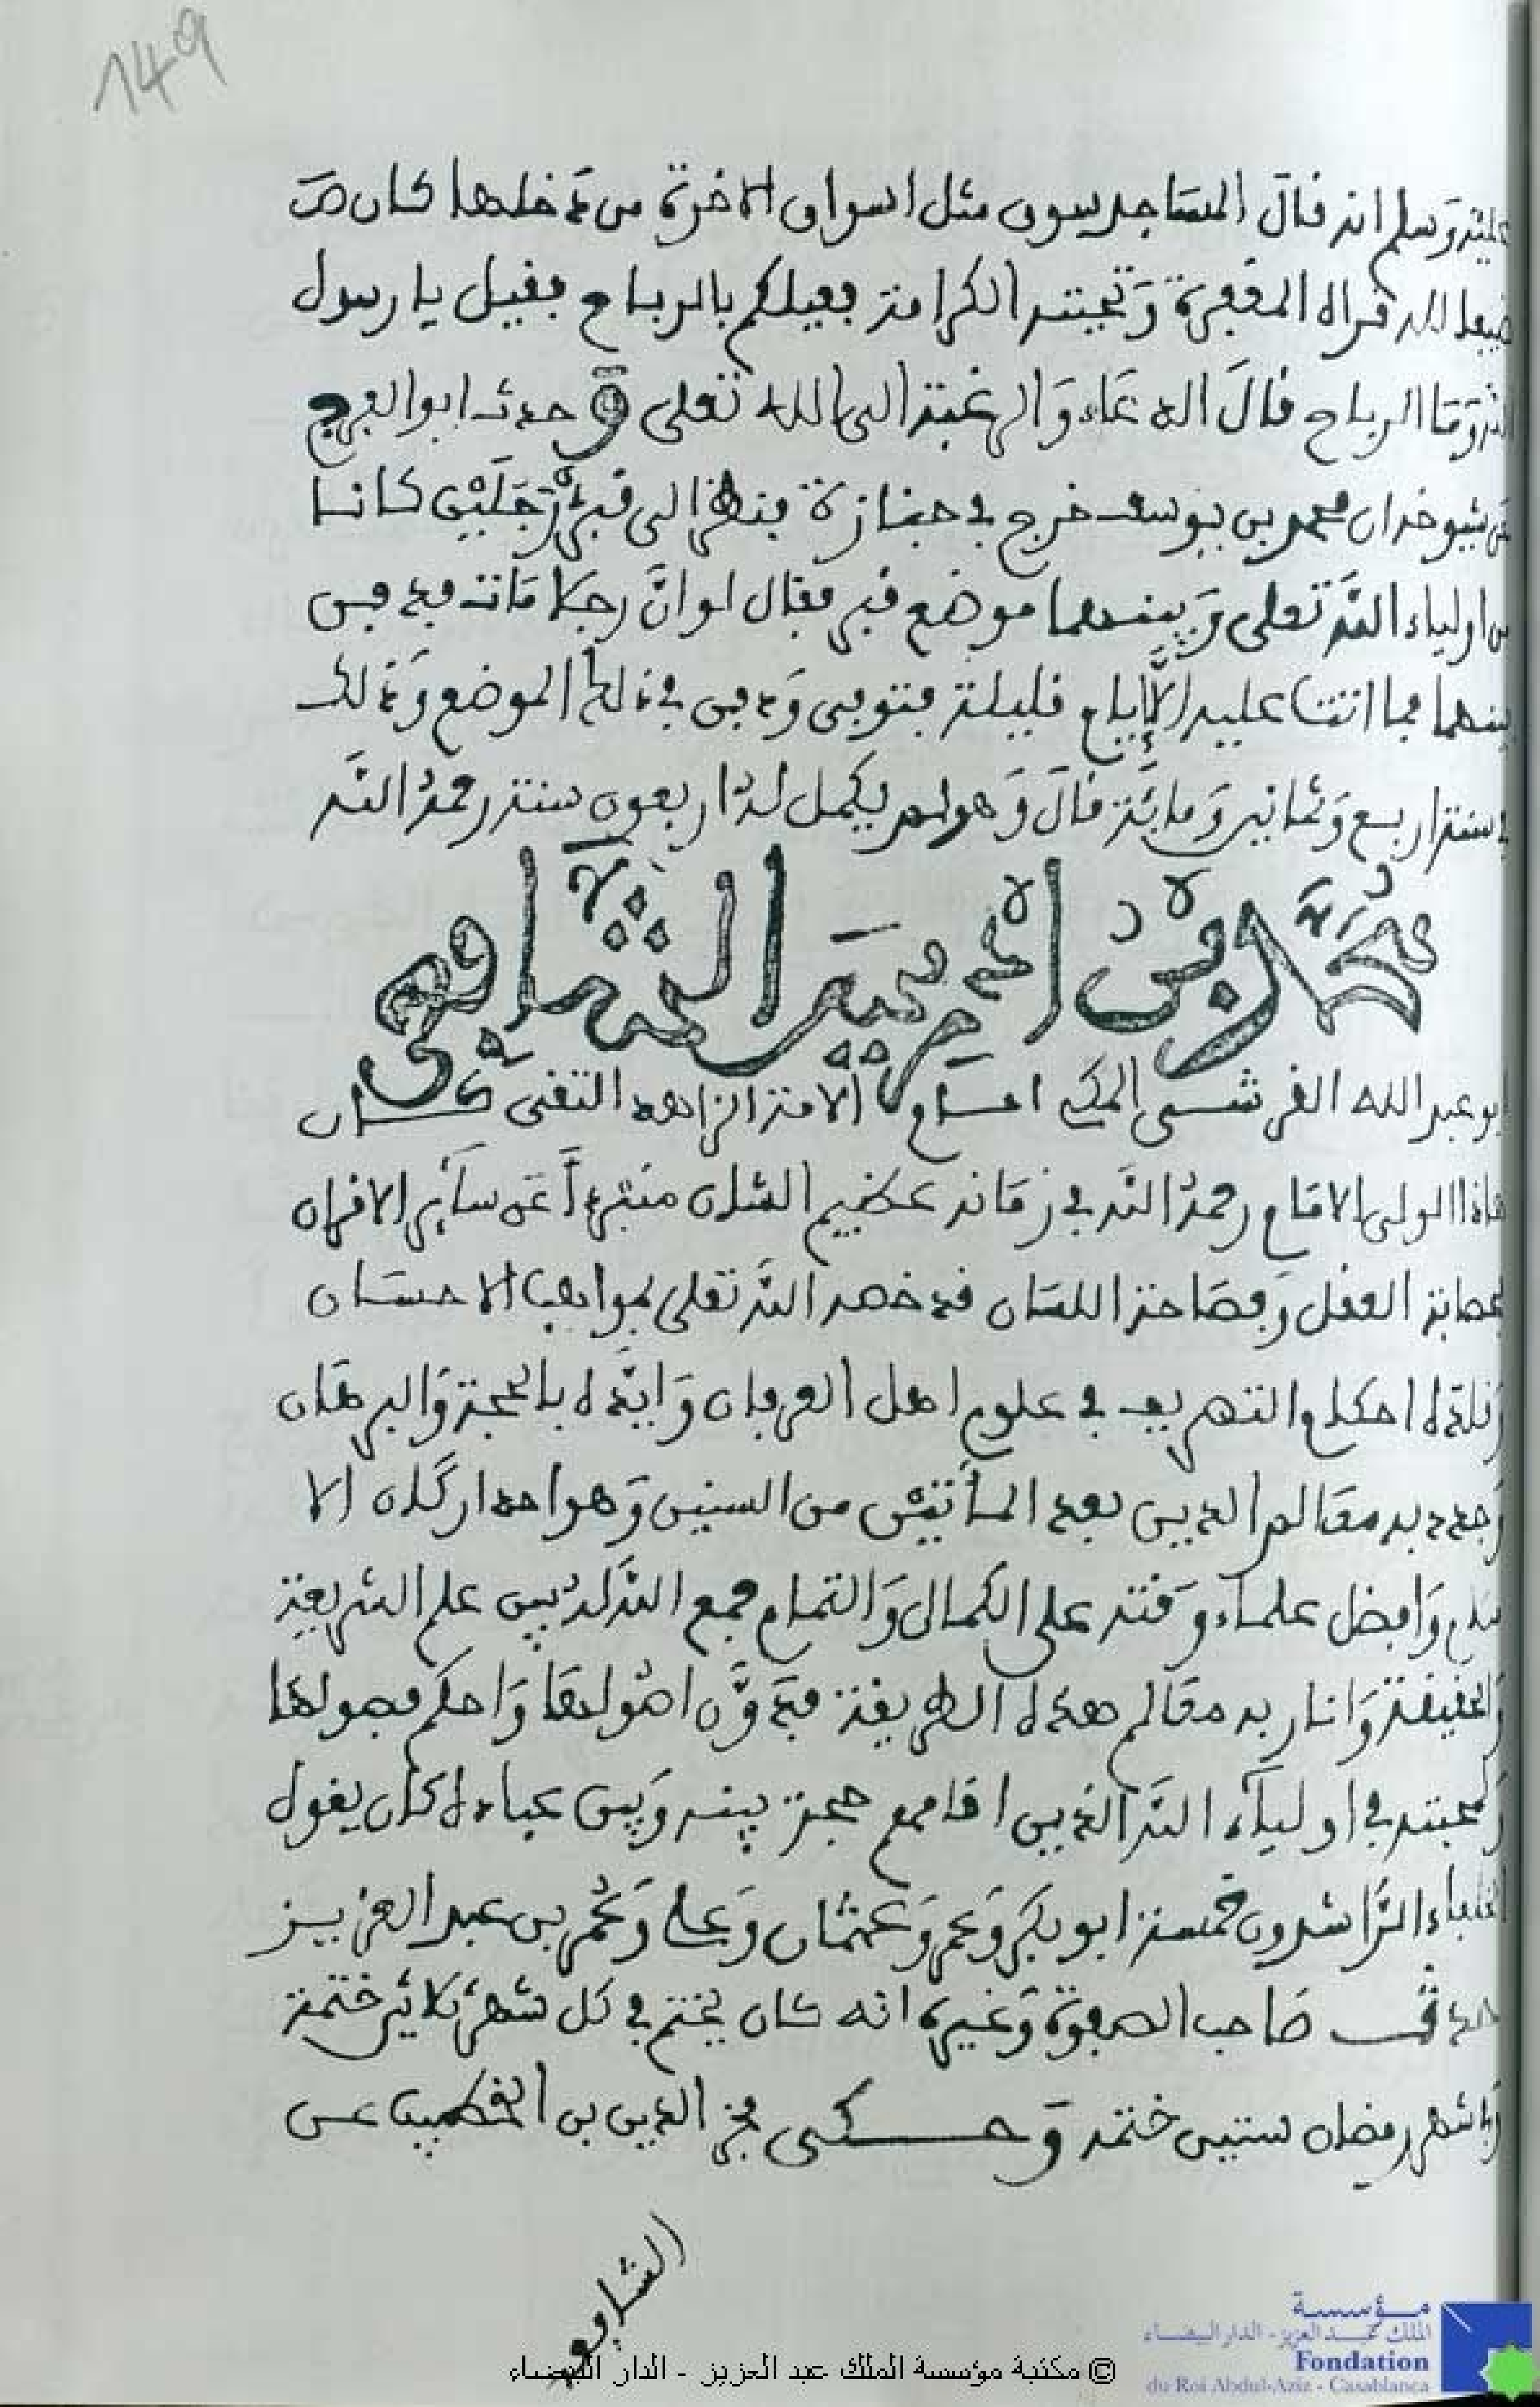 149
عليه وسلم انه قال المساجد سوى مثل اسواق الاخرة من دخلها كان ضـ
ضيفا لله قراه المغفرة وتحيته الكرامة فعليكم بالرباح فقيل يا رسول
الله وما الرباح قال الدعاء والرغبة الى الله تعلى وحدث ابو الفرج
عن شيوخه ان محمد بن يوسف خرج في جنازة فنظر الى قبر رجلين كانا
من اولياء الله تعلى وبينهما موضع قبر فقال لو ان رجلا مات فدفن
بينهما فما اتتا عليه الا ايام قليلة فتوفي ودفن في ذلك الموضع وذلك
في سنة اربع وثمانين ومائة قال وهو لم يكمل له اربعون سنة رحمه الله
محمد ابن ادريس الشافعي
ابو عبد الله القرشي المكي امام الامة الزاهد التقي كان
هاذا الولي الامام رحمه الله في زمانه عظيم الشان منفردا عن سائر الاقران
بحصانة العقل وفصاحة اللسان قد خصه الله تعلى بمواهب الاحسان
وقلده احكام التصريف في علوم اهل العرفان وايده بالحجة والبرهان
وجدد به معالم الدين بعد المائتين من السنين وهو احد اركان الا
سلام وافضل علماء وقته على الكمال والتمام فجمع الله له بين علم الشريعة
والحقيقة وانار به معالم هذه الطريقة فدون اصولها واحكم فصولها
ومحبته في اولياء الله الذين اقامهم حجة بينه وبين عباده كان يقول
الخلفاء الراشدون خمسة ابو بكر وعمر وعثمان وعلي وعمر بن عبد العزيز
صاحب الصفوة وغيره انه كان يختم في كل شهر ثلاثين ختمة
وفي شهر رمضان ستين ختمة وحكى فخر الدين بن الخطيب عن
الشافعي
© مكتبة مؤسسة الملك عبد العزيز - الدار البيضاء
مؤسسة
الملك عبد العزيز - الدار البيضاء
Fondation
du Roi Abdul-Aziz - Casablanca